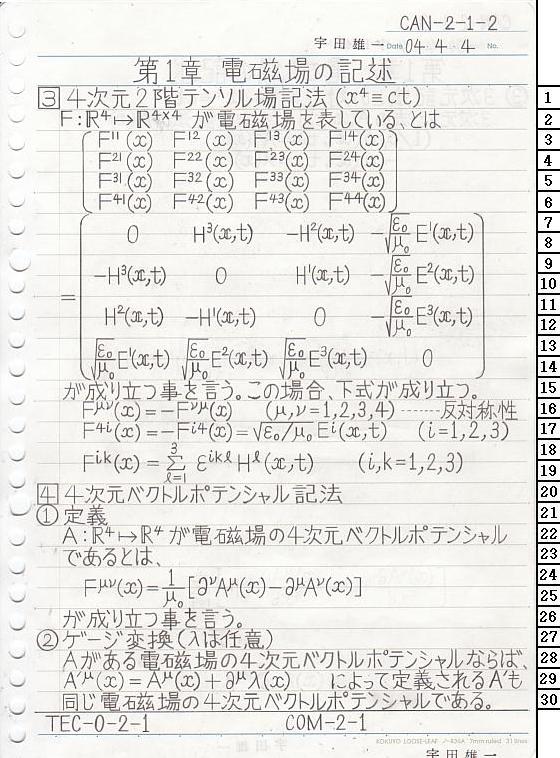 CAN-2-1-2
宇田雄一 Date 04・4・4 No.
第1章 電磁場の記述
3 4次元2階テンソル場記法(x⁴≡ct)
F:ℝ⁴↦ℝ⁴ˣ⁴ が電磁場を表している、とは
F¹¹(x) F¹²(x) F¹³(x) F¹⁴(x)
F²¹(x) F²²(x) F²³(x) F²⁴(x)
F³¹(x) F³²(x) F³³(x) F³⁴(x)
F⁴¹(x) F⁴²(x) F⁴³(x) F⁴⁴(x)
0 H³(x,t) -H²(x,t) -√(ε₀/μ₀) E¹(x,t)
-H³(x,t) 0 H¹(x,t) -√(ε₀/μ₀) E²(x,t)
= H²(x,t) -H¹(x,t) 0 -√(ε₀/μ₀) E³(x,t)
√(ε₀/μ₀) E¹(x,t) √(ε₀/μ₀) E²(x,t) √(ε₀/μ₀) E³(x,t) 0
が成り立つ事を言う。この場合、下式が成り立つ。
F^μν(x)=-F^νμ(x) (μ,ν=1,2,3,4) ------反対称性
F⁴ⁱ(x)=-Fⁱ⁴(x)=√ε₀/μ₀ Eⁱ(x,t) (i=1,2,3)
F^ik(x)=Σ_{ℓ=1}^{3} ε^ikℓ H^ℓ(x,t) (i,k=1,2,3)
4 4次元ベクトルポテンシャル記法
① 定義
A:ℝ⁴↦ℝ⁴ が電磁場の4次元ベクトルポテンシャル
であるとは、
F^μν(x)=1/μ₀[∂^νA^μ(x)-∂^μA^ν(x)]
が成り立つ事を言う。
② ゲージ変換(λは任意)
Aがある電磁場の4次元ベクトルポテンシャルならば、
A'^μ(x)=A^μ(x)+∂^μλ(x) によって定義されるA'も
同じ電磁場の4次元ベクトルポテンシャルである。
TEC-0-2-1 COM-2-1
KOKUYO LOOSE-LEAF ノ-836A 7mm ruled 31 lines
宇田雄一
1
2
3
4
5
6
7
8
9
10
11
12
13
14
15
16
17
18
19
20
21
22
23
24
25
26
27
28
29
30